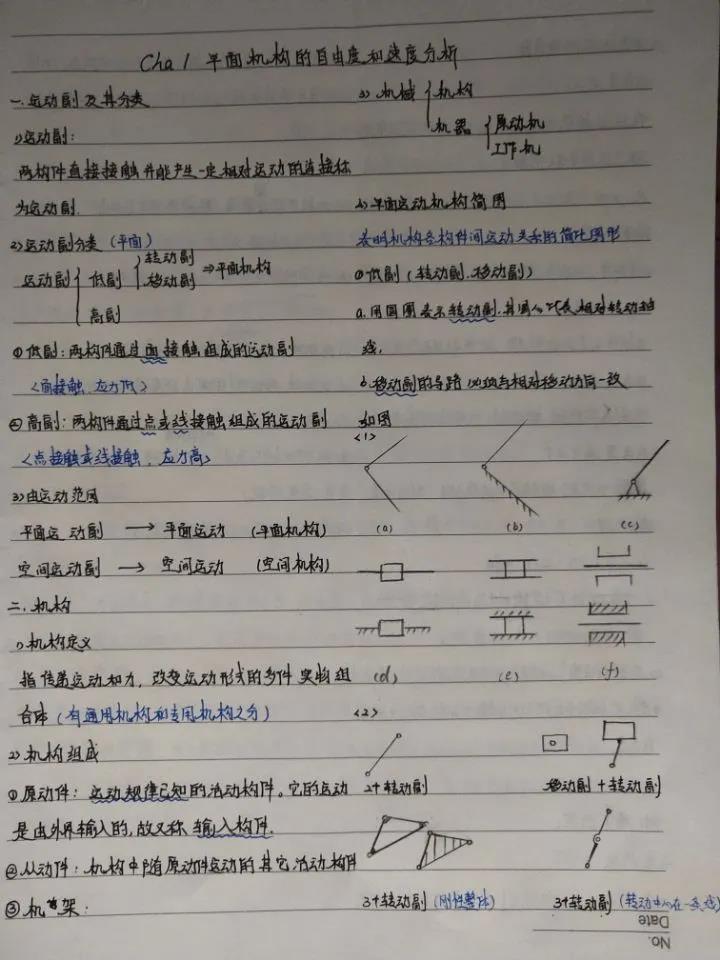 Cha 1 平面机构的自由度和速度分析
一. 运动副及其分类
1) 运动副:
两构件直接接触并能产生一定相对运动的连接称
为运动副.
2) 运动副分类 (平面)
运动副 { 低副 { 转动副 移动副 ⇒ 平面机构
高副
① 低副: 两构件通过面接触组成的运动副
<面接触. 应力低>
② 高副: 两构件通过点或线接触组成的运动副
<点接触或线接触. 应力高>
3) 由运动范围
平面运动副 → 平面运动 (平面机构)
空间运动副 → 空间运动 (空间机构)
二. 机构
1) 机构定义
指传递运动和力, 改变运动形式的多件实物组
合体 (有通用机构和专用机构之分)
2) 机构组成
① 原动件: 运动规律已知的活动构件。它的运动
是由外界输入的, 故又称输入构件.
② 从动件: 机构中随原动件运动的其它活动构件
③ 机架:
3) 机械 { 机构
机器 { 原动机
工作机
4) 平面运动机构简图
表明机构各构件间运动关系的简化图形
① 低副 (转动副. 移动副)
a. 用圆圈表示转动副. 其圆心代表相对转动轴
线.
b. 移动副的导路必须与相对移动方向一致
如图
<1>
(a) (b) (c)
(d) (e) (f)
<2>
2个转动副 移动副 + 转动副
3个转动副 (刚性整体) 3个转动副 (转动中心在一条线)
Date
No.